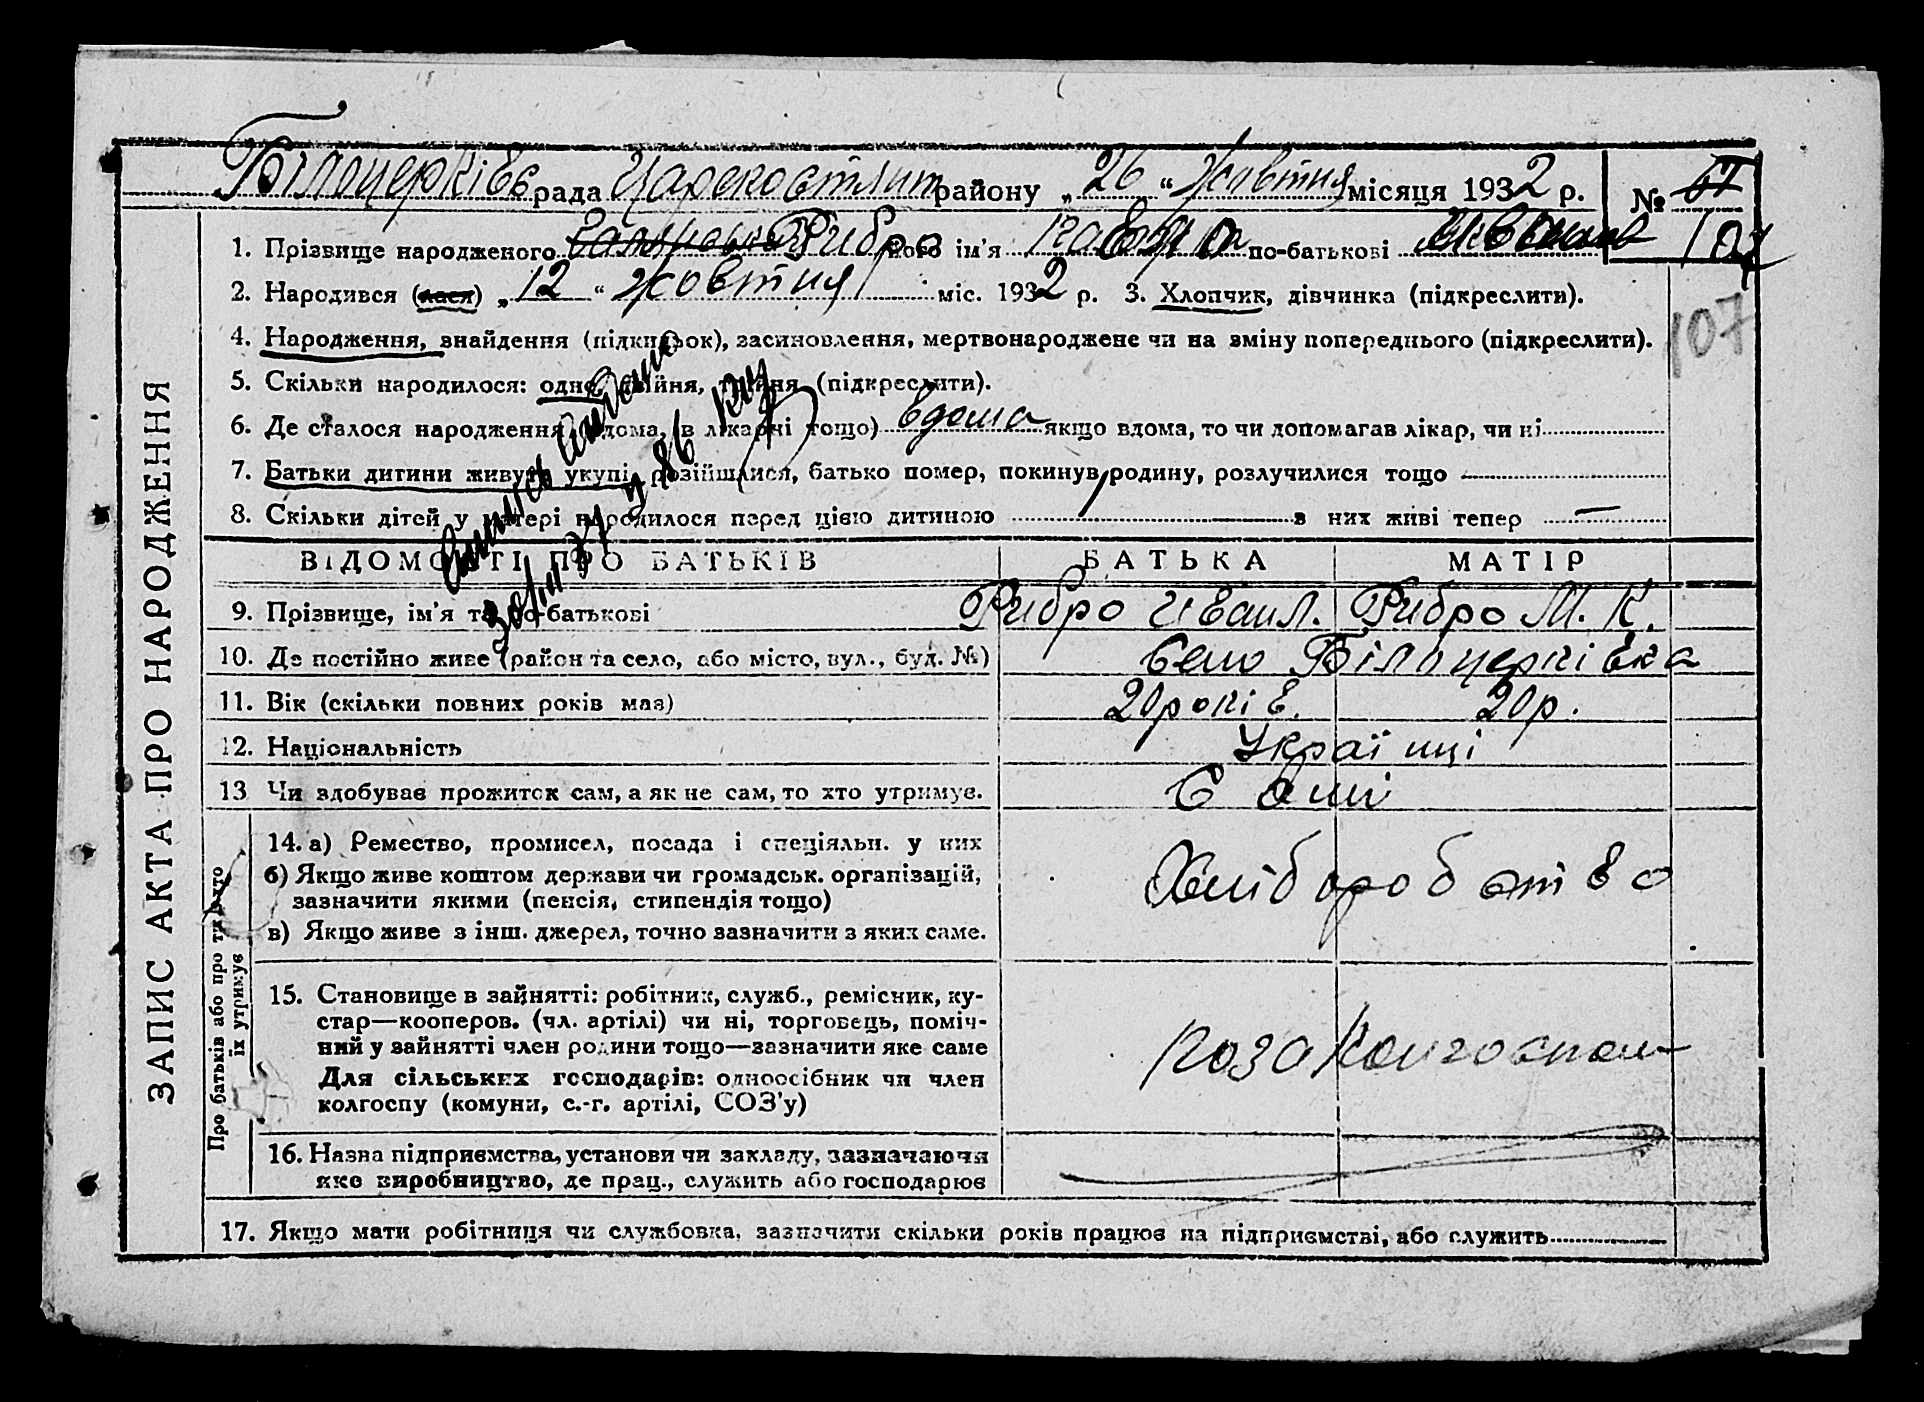 Білоцерківс рада Царекостлит району „26“ Жовтня місяця 1932 р. №
1. Прізвище народженого Рибро його ім'я по-батькові
107
2. Народився (лася) „12“ жовтня міс. 1932 р. 3. Хлопчик, дівчинка (підкреслити).
107
4. Народження, знайдення (підкидьок), засиновлення, мертвонароджене чи на зміну попереднього (підкреслити).
5. Скільки народилося: одне, двійня, трійня (підкреслити).
6. Де сталося народження (вдома, в лікарні тощо) вдома якщо вдома, то чи допомагав лікар, чи ні
7. Батьки дитини живуть укупі, розійшлися, батько помер, покинув родину, розлучилися тощо
8. Скільки дітей у матері народилося перед цією дитиною з них живі тепер
ВІДОМОСТІ ПРО БАТЬКІВ БАТЬКА МАТІР
9. Прізвище, ім'я та по-батькові Рибро Іван Л. Рибро М. К.
10. Де постійно живе (район та село, або місто, вул., буд. №) Село Білоцерківка
11. Вік (скільки повних років має) 20 років. 20 р.
12. Національність Україцці
13 Чи здобуває прожиток сам, а як не сам, то хто утримує. Самі
14. а) Ремество, промисел, посада і спеціяльн. у них
б) Якщо живе коштом держави чи громадськ. організацій,
зазначити якими (пенсія, стипендія тощо)
Хліборобство
в) Якщо живе з інш. джерел, точно зазначити з яких саме.
15. Становище в зайнятті: робітник, служб., ремісник, ку-
стар—кооперов. (чл. артілі) чи ні, торговець, поміч-
ний у зайнятті член родини тощо—зазначити яке саме
поза колгоспом
Для сільських господарів: одноосібник чи член
колгоспу (комуни, с.-г. артілі, СОЗ'у)
16. Назва підприємства, установи чи закладу, зазначаючи
яке виробництво, де прац., служить або господарює
17. Якщо мати робітниця чи службовка, зазначити скільки років працює на підприємстві, або служить
ЗАПИС АКТА ПРО НАРОДЖЕННЯ
Про батьків або про ти хто
їх утримує